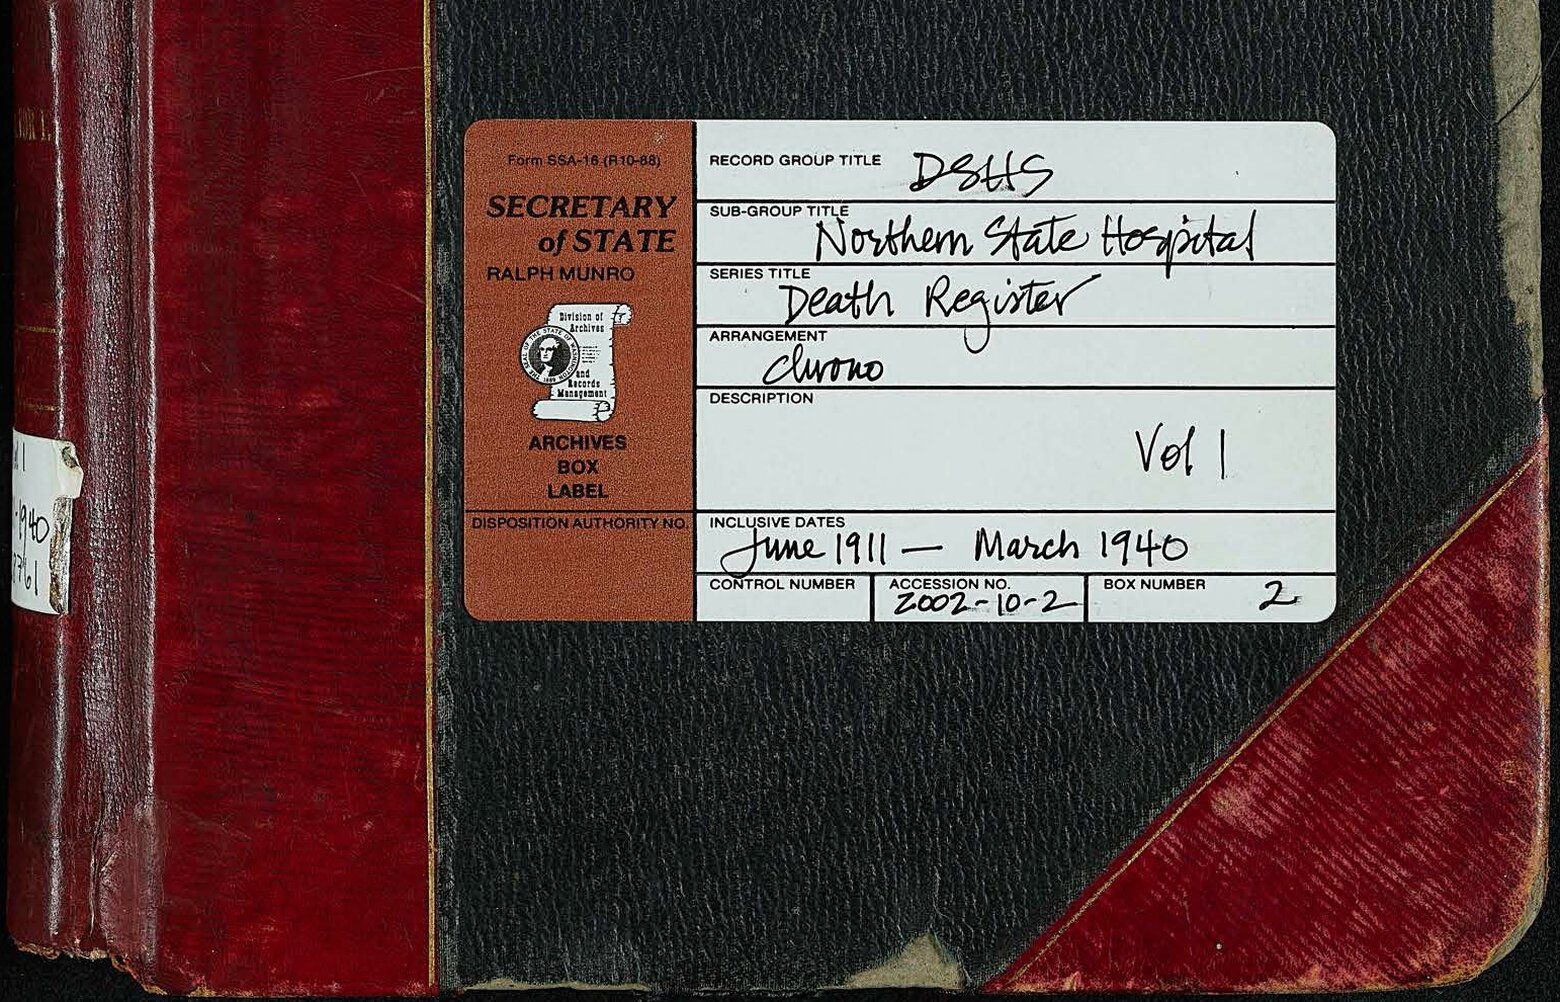 Form SSA-16 (R10-88)
SECRETARY
of STATE
RALPH MUNRO
Division of
Archives
and
Records
Management
THE SEAL OF THE STATE OF WASHINGTON
1889
ARCHIVES
BOX
LABEL
DISPOSITION AUTHORITY NO.
RECORD GROUP TITLE DSHS
SUB-GROUP TITLE
Northern State Hospital
SERIES TITLE
Death Register
ARRANGEMENT
Chrono
DESCRIPTION
Vol 1
INCLUSIVE DATES
June 1911 — March 1940
CONTROL NUMBER
ACCESSION NO.
2002-10-2
BOX NUMBER 2
1
-1940